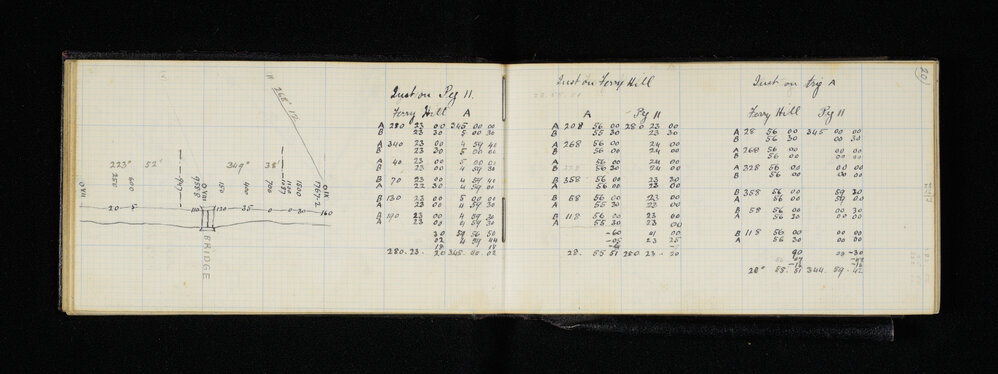 268° 12'
223° 52'
349° 38'
0 VII
250
600
955.8
0 VIII
150
400
700
1100
1500
1767.2
0 IX
20 5 110 120 35 0 0 30 160
BRIDGE
Inst on Peg 11.
Ferry Hill A
A 280 23 00 345 00 00
B 23 30 5 00 30
A 340 23 00 4 59 40
B 23 30 5 00 00
A 40 23 00 5 00 00
B 23 00 4 59 30
B 70 23 00 4 59 40
A 22 30 4 59 00
B 130 23 00 5 00 00
A 23 00 4 59 30
B 190 23 00 4 59 30
A 23 00 4 59 30
30 59 56 50
02 4 59 44
18 18
280. 23. 20 345. 00 02
Inst on Ferry Hill
A Peg 11
A 208 56 00 280 23 00
B 55 30 23 30
A 268 56 00 24 00
B 56 00 24 00
A 56 00 24 00
B 56 30 23 00
B 358 56 00 23 30
A 56 00 23 00
B 58 56 00 23 00
A 55 30 22 00
B 118 56 00 23 00
A 55 30 23 00
-60 01 00
-05 23 25
28. 55 51 280. 23. 20
20
Inst on trig A
Ferry Hill Peg 11
A 28 56 00 345 00 00
B 56 30 00 30
A 268 56 00 00 00
B 56 00 00 00
A 328 56 00 00 00
B 56 00 00 00
B 358 56 00 59 30
A 56 00 59 00
B 58 56 00 00 30
A 56 30 00 00
B 118 56 00 00 00
A 56 30 00 00
90 00 -30
28° 55. 51 344. 59. 42